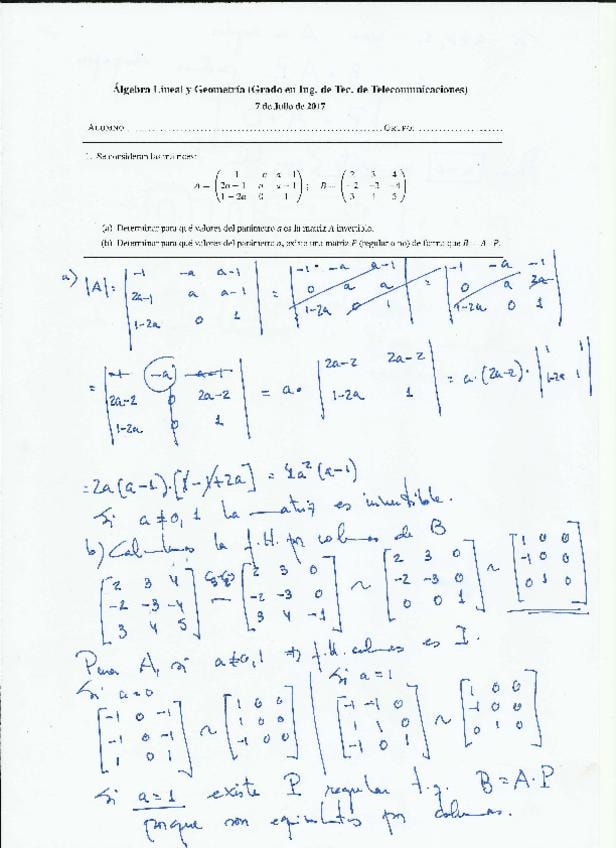 Álgebra Lineal y Geometría (Grado en Ing. de Tec. de Telecomunicaciones)
7 de Julio de 2017
ALUMNO GRUPO:
1. Se consideran las matrices:
A = ; B = ( 2 3 4
-2 -3 -4
3 4 5 )
(a) Determinar para qué valores del parámetro a es la matriz A invertible.
(b) Determinar para qué valores del parámetro a, existe una matriz P (regular o no) de forma que B = A · P.
a) |A| = | -1 -a a-1 | = | -1 -a a-1 | = | -1 -a -1 |
2a-1 a a-1 0 a a 0 a
1-2a 0 1 1-2a 0 1 1-2a 0 1
= | -a | = a · | 2a-2 2a-2 | = a·(2a-2)· | 1 1 |
2a-2 0 2a-2 1-2a 1 1-2a 1
1-2a 0 1
= 2a(a-1)·[1-1+2a] = 4a²(a-1)
Si a≠0,1 la matriz es invertible.
b) Calculamos la f.H. por columnas de B
[ 2 3 4 ] [ 2 3 0 ] ~ [ 2 3 0 ] ~ [ 1 0 0 ]
-2 -3 -4 -2 -3 0 -2 -3 0 -1 0 0
3 4 5 3 4 -1 0 0 1 0 1 0
Para A, si a≠0,1 ⇒ f.H. columnas es I.
Si a=0 Si a=1
[ -1 0 -1 ] ~ [ 1 0 0 ] [ -1 -1 0 ] ~ [ 1 0 0 ]
-1 0 -1 1 0 0 1 1 0 -1 0 0
1 0 1 -1 0 0 -1 0 1 0 1 0
Si a=1 existe P regular t.q. B = A·P
porque son equivalentes por columnas.